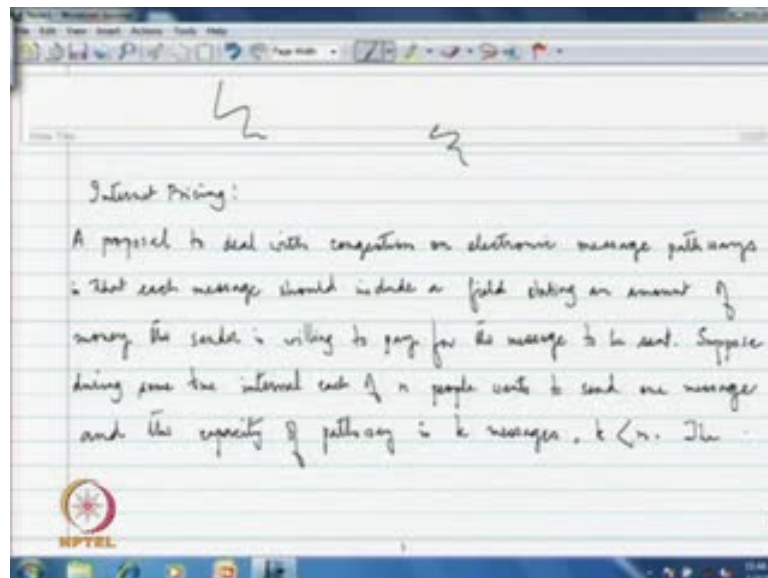 File Edit View Insert Actions Tools Help
Page Width
Note Title
Internet Pricing:
A proposal to deal with congestion on electronic message pathways
is that each message should include a field stating an amount of
money the sender is willing to pay for the message to be sent. Suppose
during some time interval each of n people wants to send one message
and the capacity of pathway is k messages, k < n. The
NPTEL